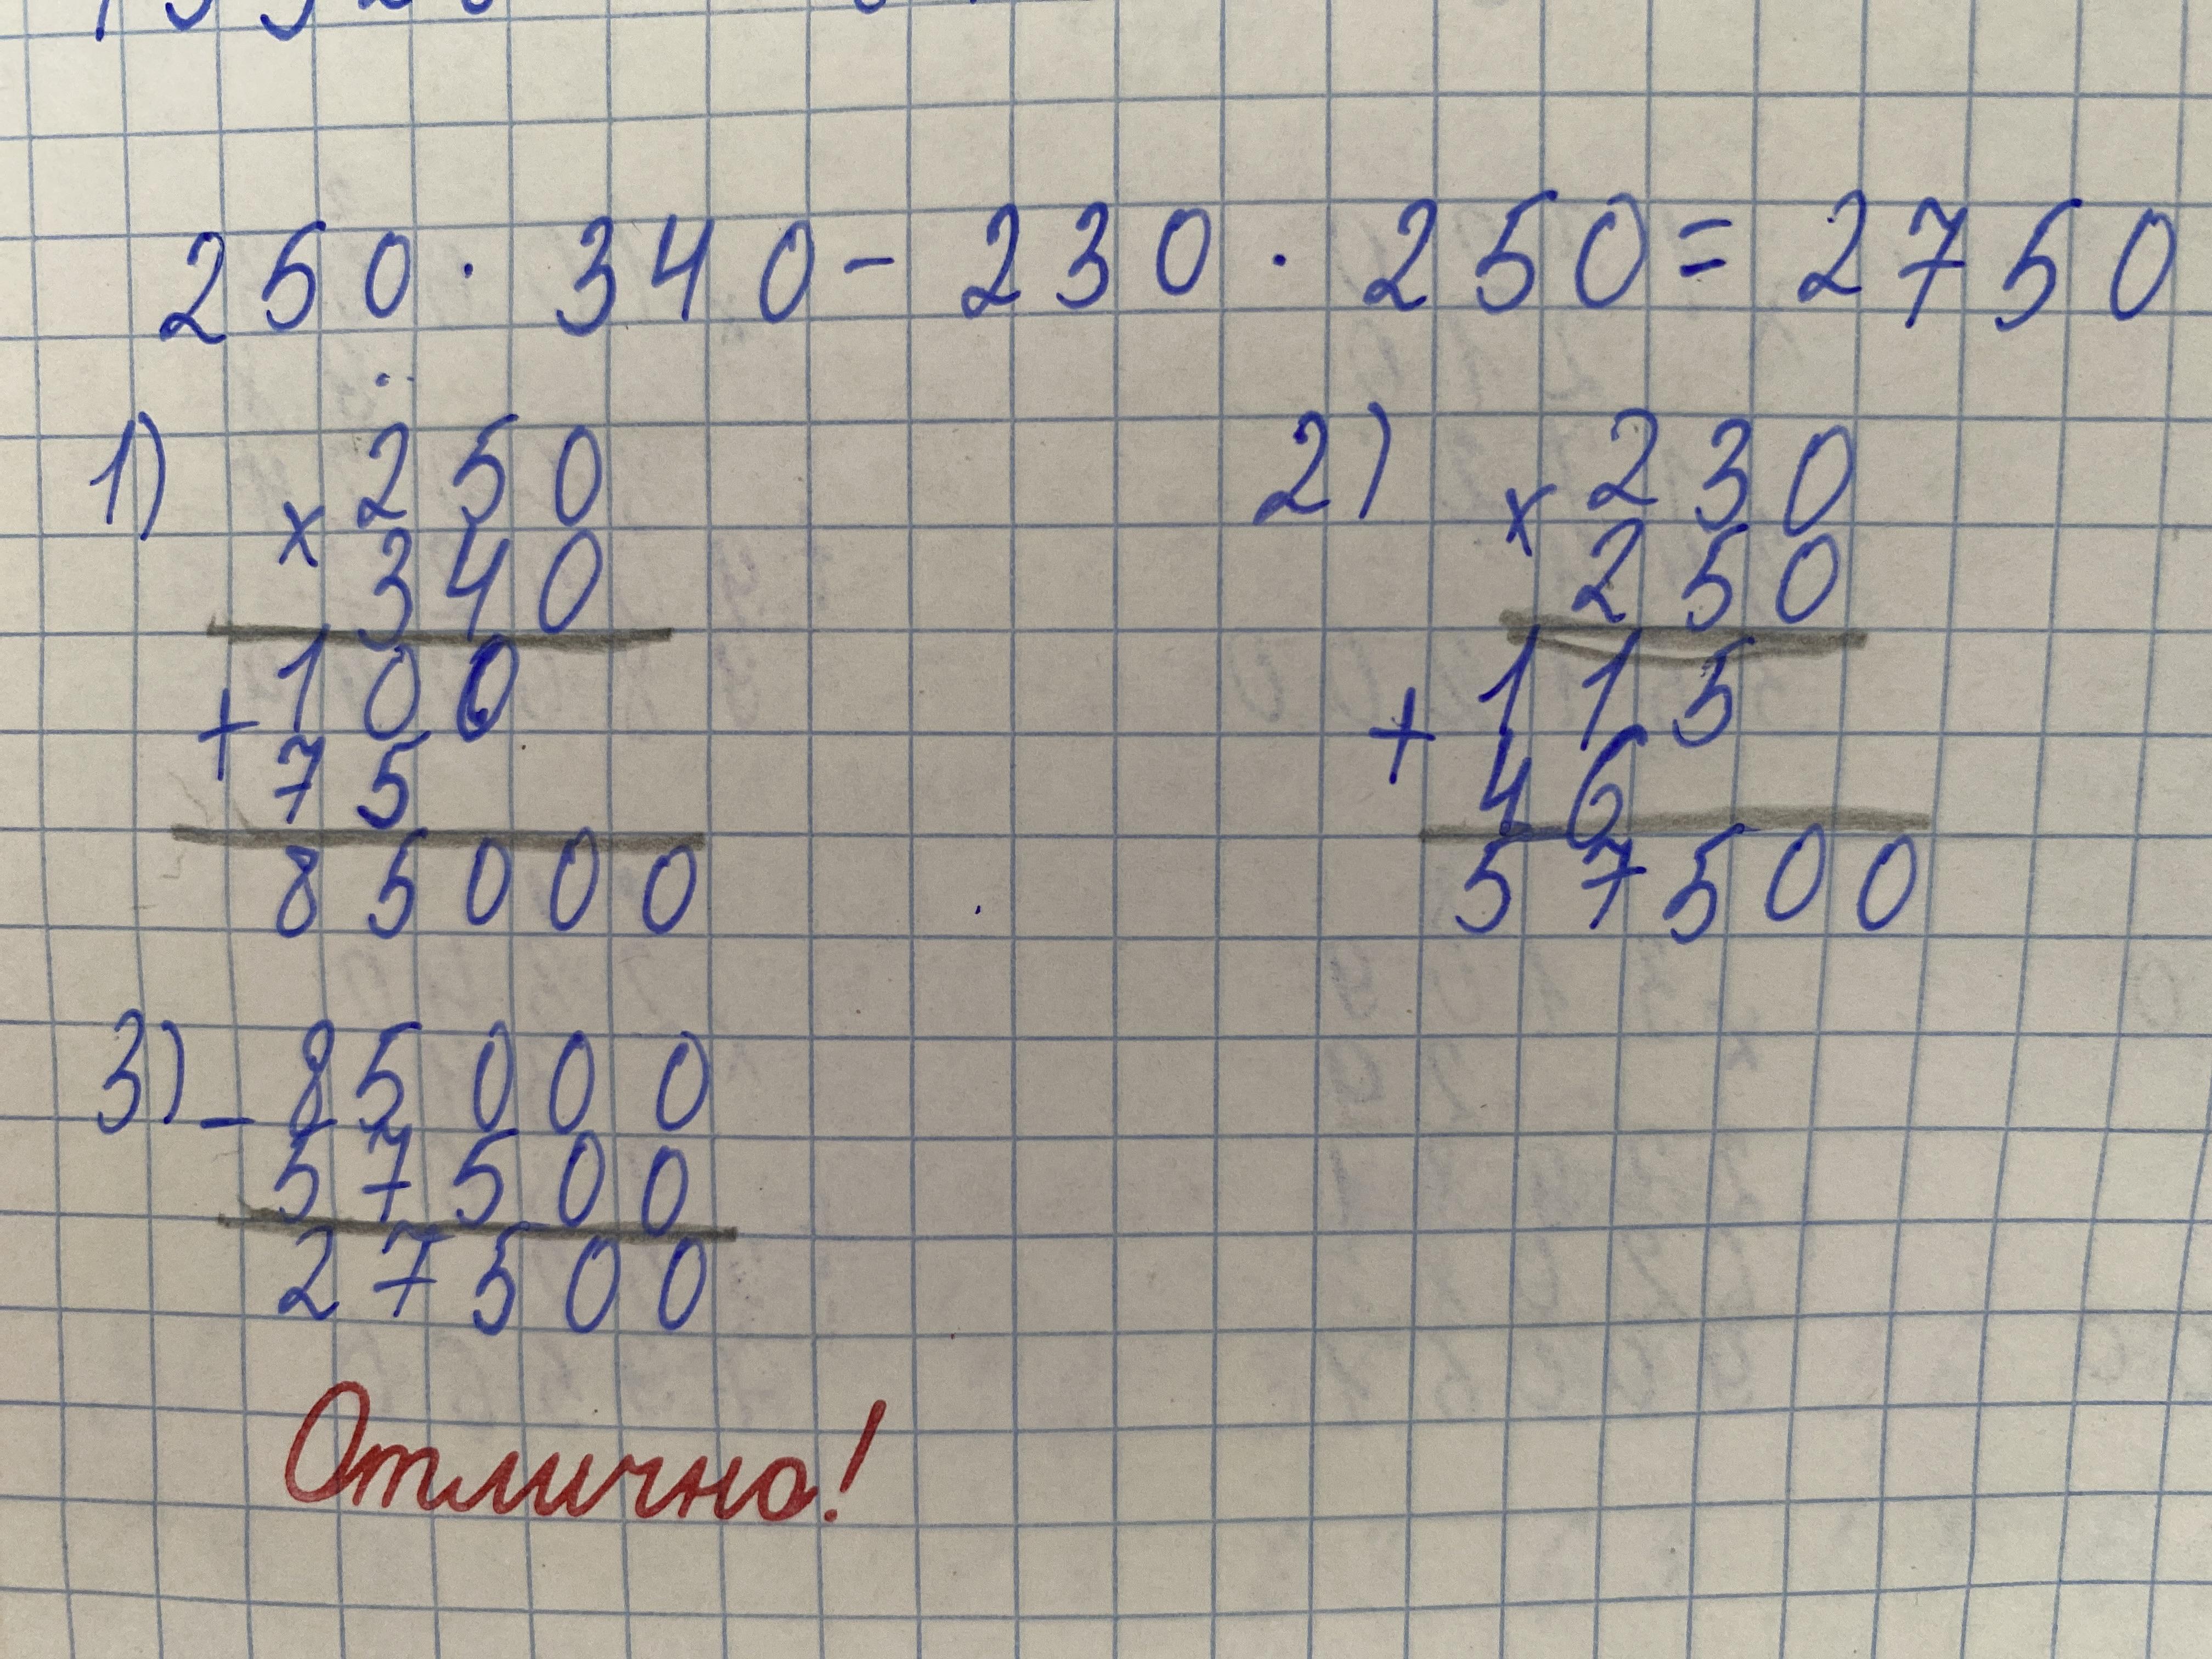 250 · 340 - 230 · 250 = 2750
1) 2) 
× 250 × 230
340 250
+ 100 + 115
75 46
85000 57500
3) - 85000
57500
27500
Отлично!